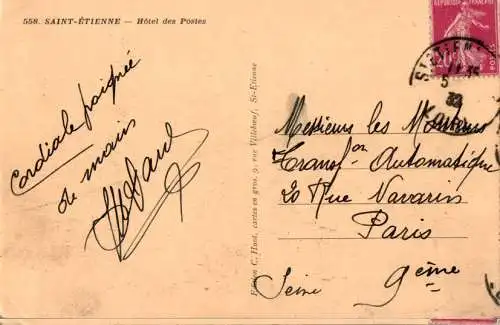 558. SAINT-ÉTIENNE — Hôtel des Postes
Cordiale poignée
de main
Edition C. Hunt, cartes en gros, 9, rue Villebœuf, St-Etienne
REPUBLIQUE FRANÇAISE
POSTES
ST-ETIENNE
5
32
Messieurs les Monteurs
Transf on Automatique
20 Rue Navarin
Paris
Seine 9ème